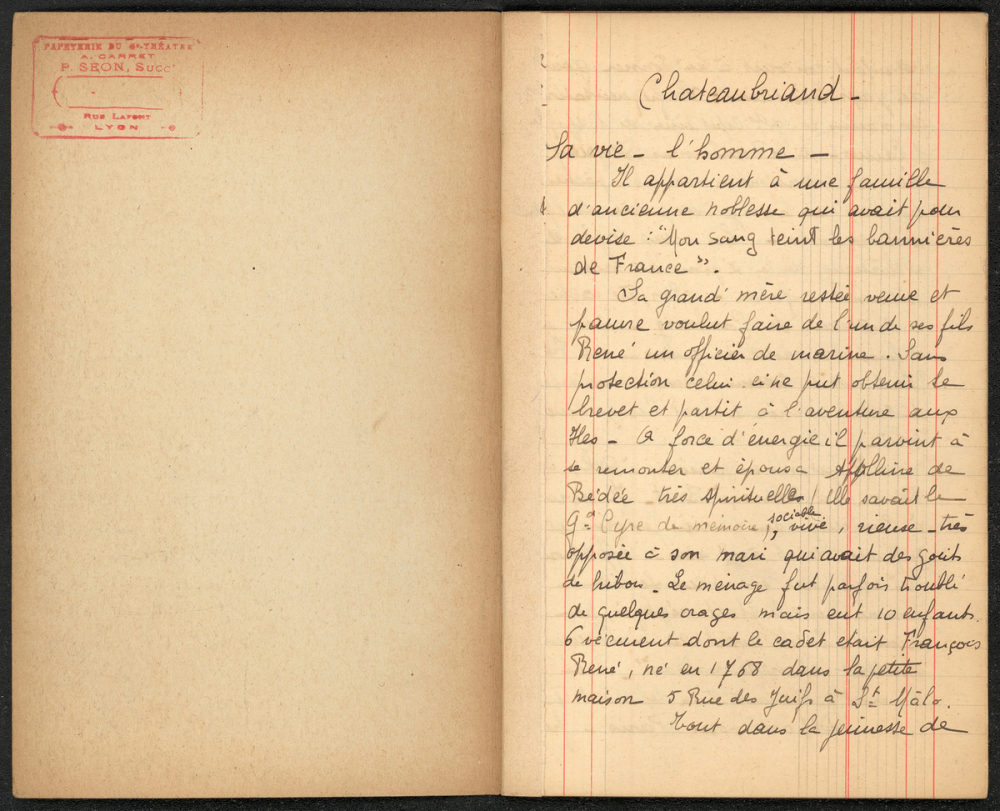 PAPETERIE DU Gd-THÉATRE
A. CARRET
P. SEON, Succr
RUE LAFONT
LYON
Chateaubriand -
Sa vie - l'homme -
Il appartient à une famille
d'ancienne noblesse qui avait pour
devise : "Mon sang teint les bannières
de France".
Sa grand' mère restée veuve et
pauvre voulut faire de l'un de ses fils
René un officier de marine. Sans
protection celui-ci ne put obtenir le
brevet et partit à l'aventure aux
Iles - A force d'énergie il parvint à
se remonter et épousa Apolline de
Bédée très spirituelle (Elle savait le
Gd Cyre de mémoire), sociable, vive, rieuse - très
opposée à son mari qui avait des goûts
de hibou. Le ménage fut parfois troublé
de quelques orages mais eut 10 enfants.
6 vécurent dont le cadet était François
René, né en 1768 dans la petite
maison 5 Rue des Juifs à St Mâlo.
Tout dans la jeunesse de